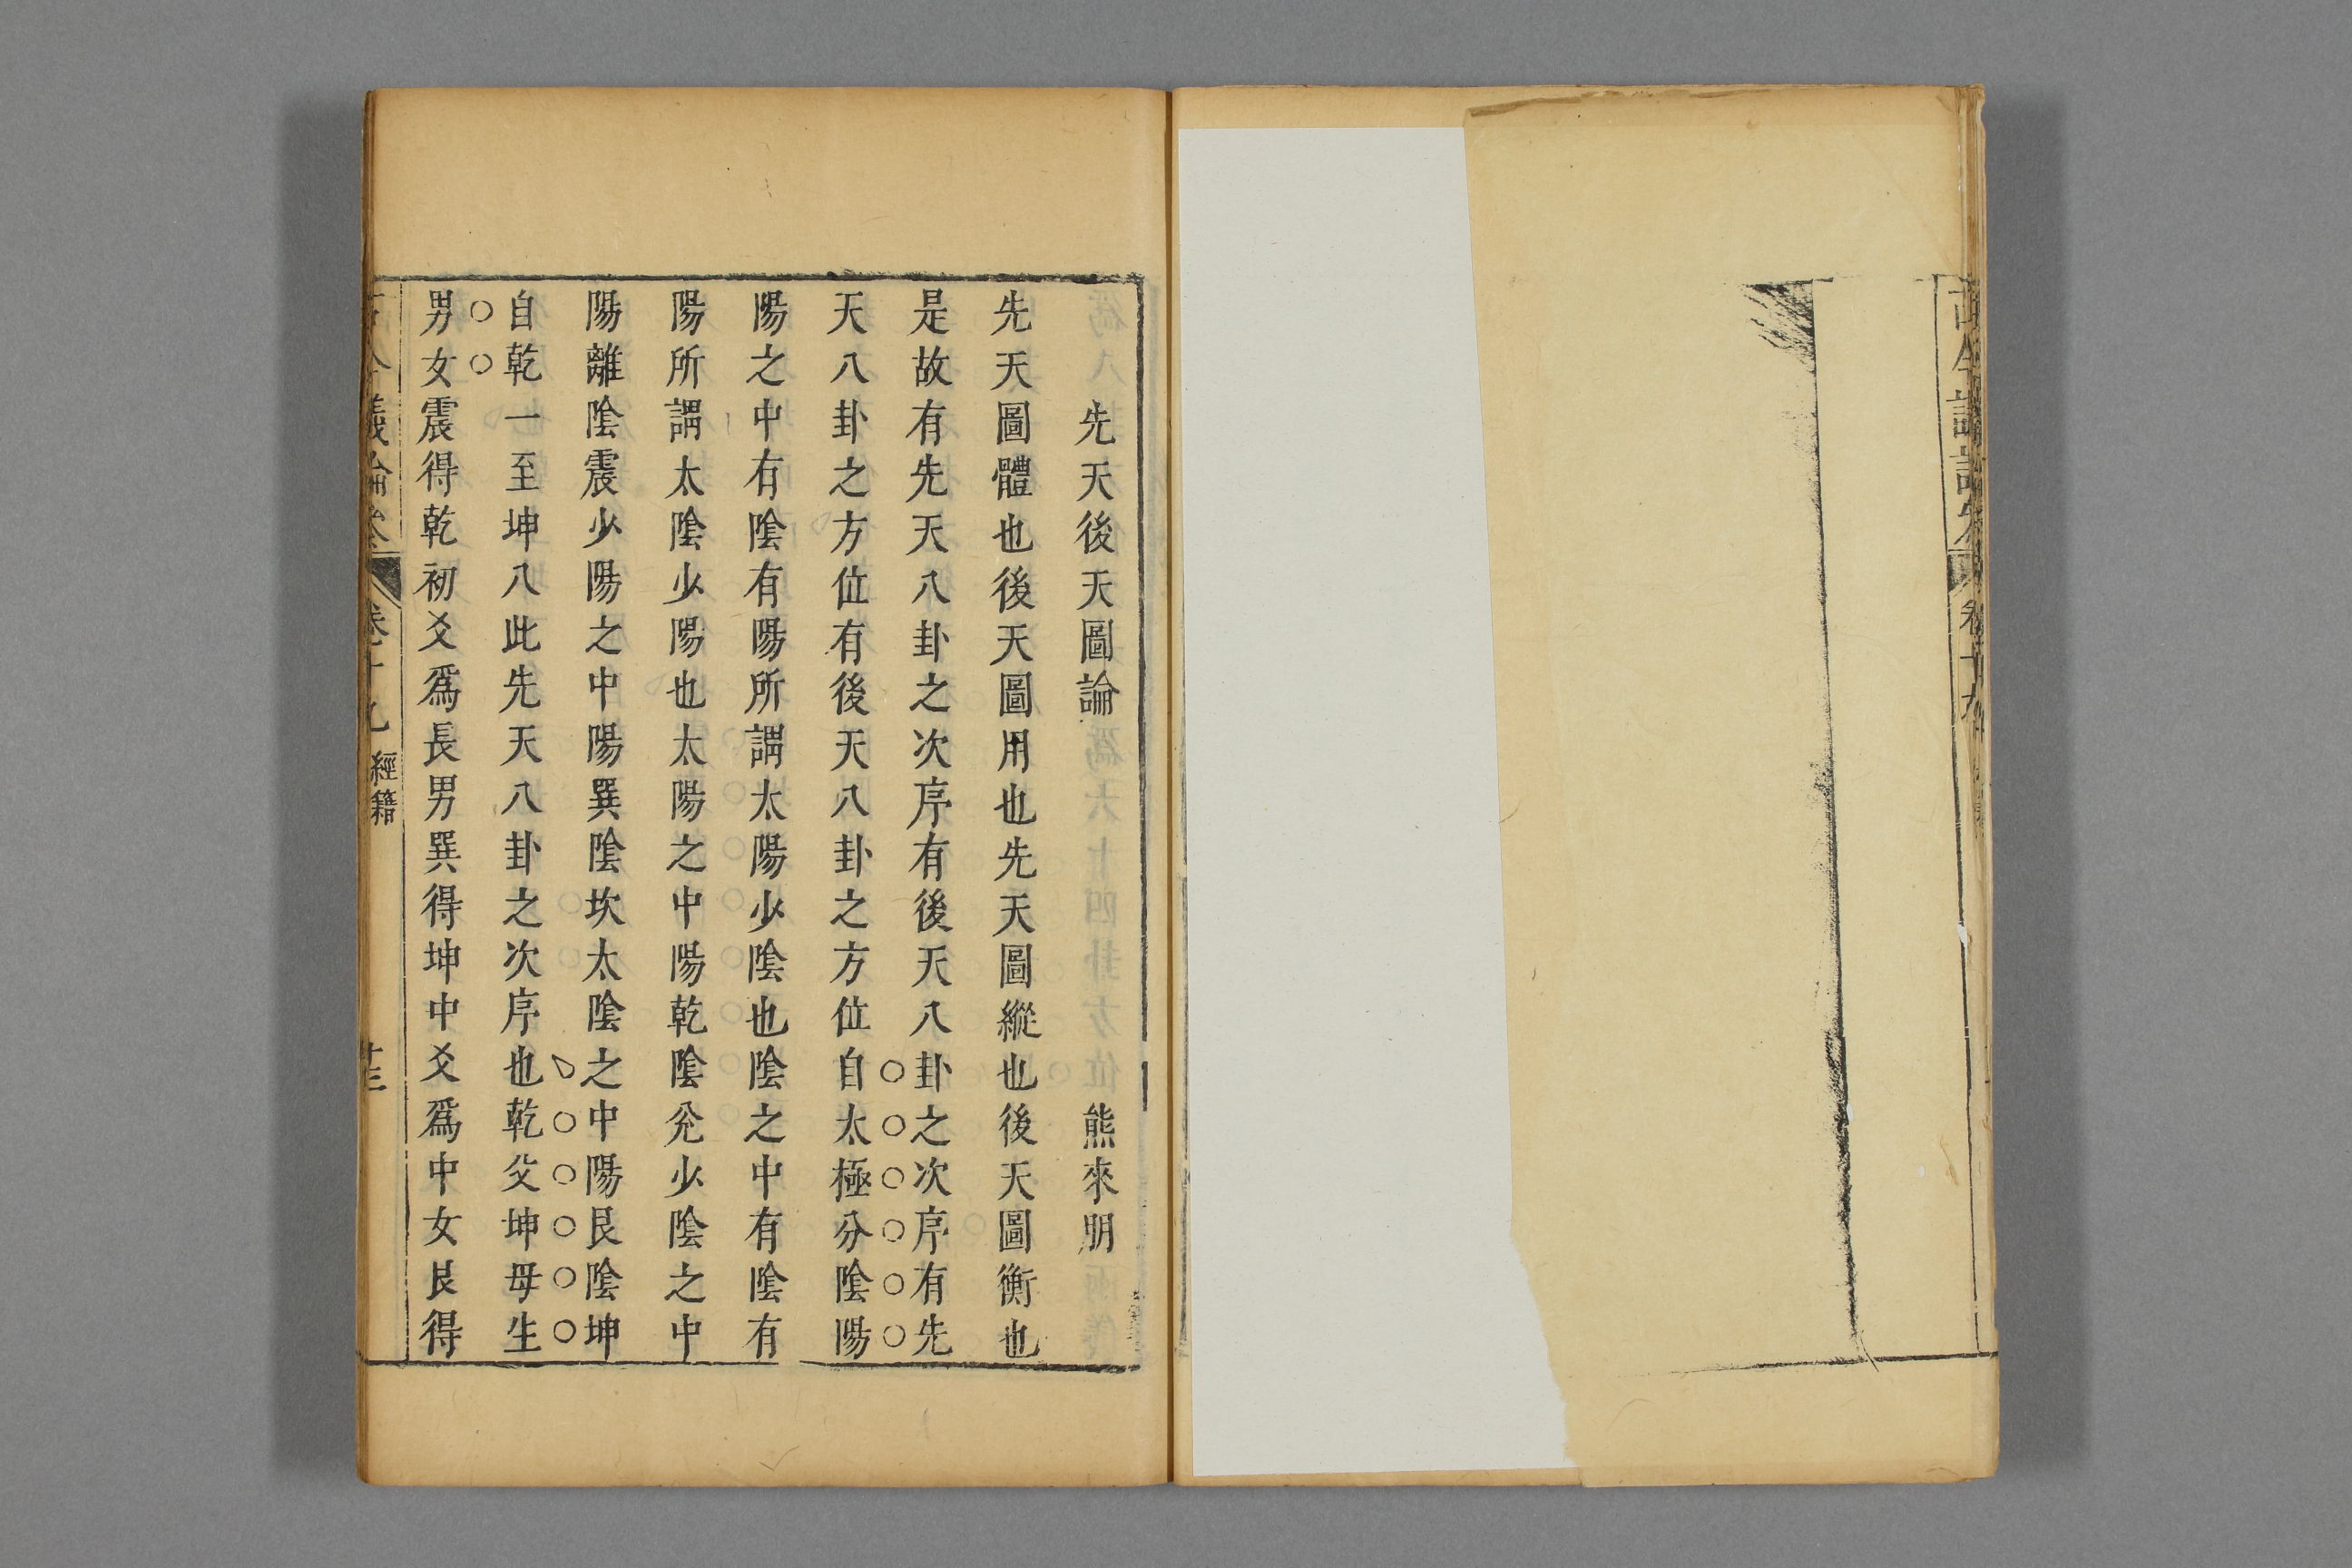 先天後天圖論 熊來朋
先天圖體也後天圖用也先天圖縱也後天圖衡也
是故有先天八卦之次序有後天八卦之次序有先
天八卦之方位有後天八卦之方位自太極分陰陽
陽之中有陰有陽所謂太陽少陰也陰之中有陰有
陽所謂太陰少陽也太陽之中陽乾陰兊少陰之中
陽離陰震少陽之中陽巽陰坎太陰之中陽艮陰坤
自乾一至坤八此先天八卦之次序也乾父坤母生
男女震得乾初爻爲長男巽得坤中爻爲中女艮得
卷十九 經籍
卷十九